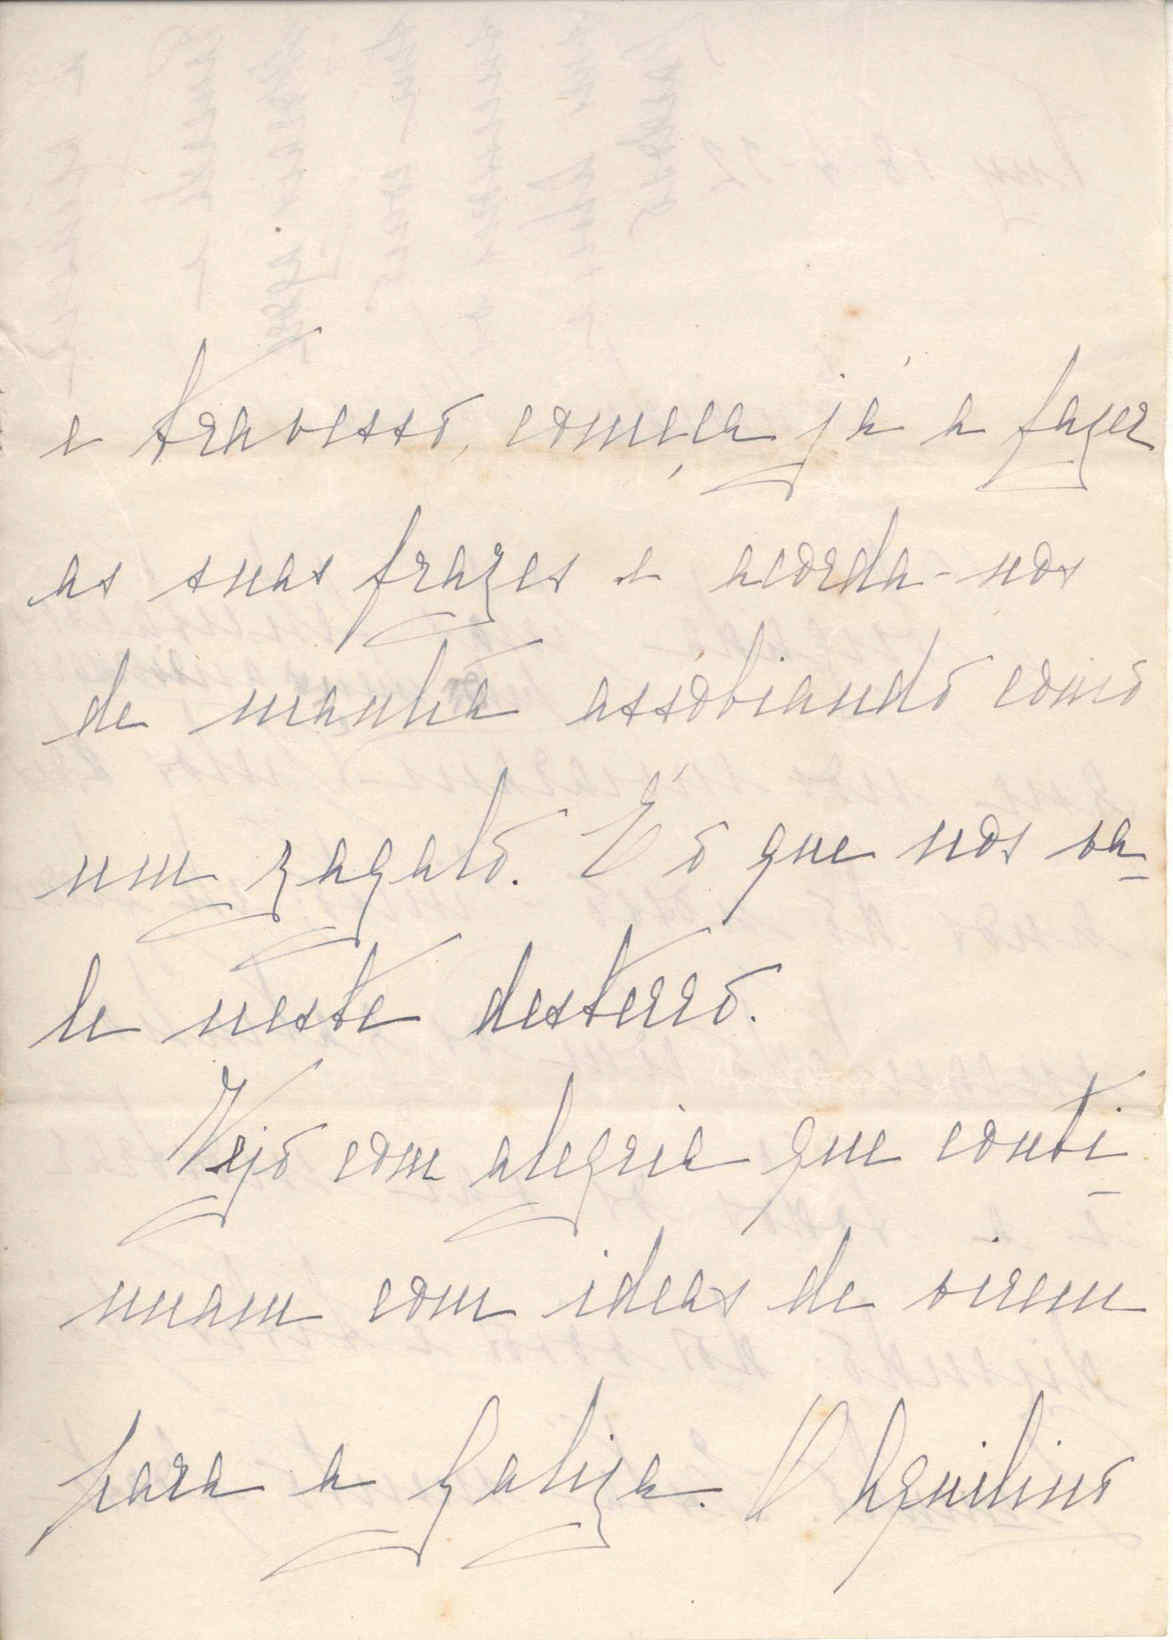 e travesso, começa já a fazer
as suas frazes e acorda-nos
de manhã assobiando como
um zagalo. É o que nos va-
le neste desterro.
Vejo com alegria que conti-
nuam com ideas de virem
para a Galiza. O Aquilino